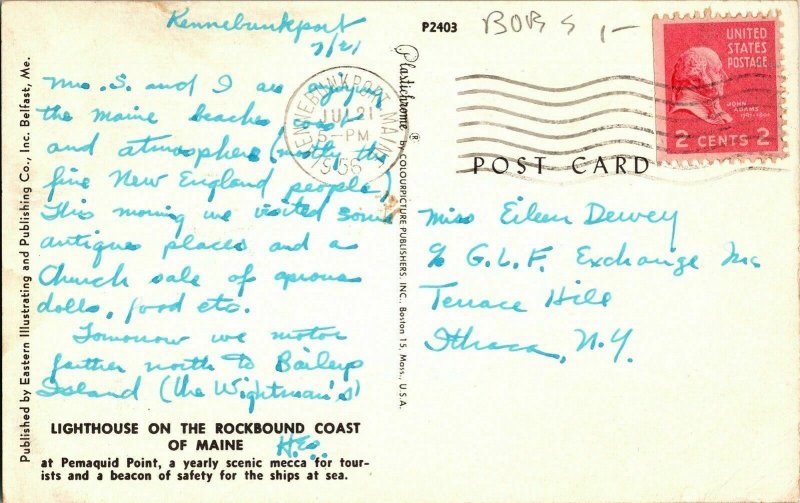 Kennebunkport
7/21
Mrs. S. and I are enjoying
the Maine beaches
and atmosphere (not the
fine New England people)
This morning we visited some
antiques places and a
Church sale of aprons
dolls, food etc.
Tomorrow we motor
farther north to Baileys
Island (the Wightman's)
H.E.S.
LIGHTHOUSE ON THE ROCKBOUND COAST
OF MAINE
at Pemaquid Point, a yearly scenic mecca for tour-
ists and a beacon of safety for the ships at sea.
Published by Eastern Illustrating and Publishing Co., Inc. Belfast, Me.
Plastichrome® by COLOURPICTURE PUBLISHERS, INC., Boston 15, Mass., U.S.A.
P2403
BOB S 1-
KENNEBUNKPORT MAINE
JUL 21
5-PM
1956
UNITED
STATES
POSTAGE
JOHN
ADAMS
2 CENTS 2
POST CARD
Miss Eileen Dewey
% G.L.F. Exchange Inc
Terrace Hill
Ithaca, N.Y.